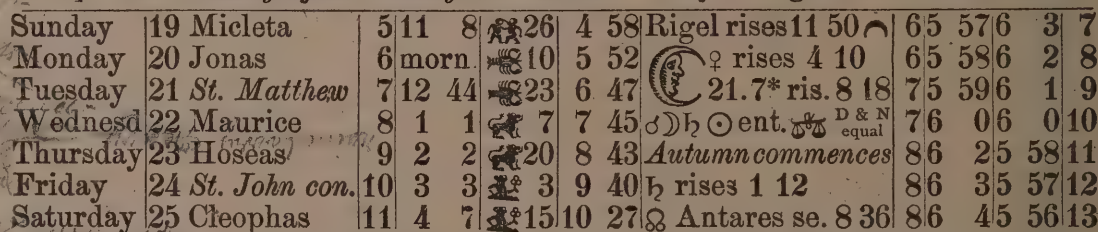 Sunday 19 Micleta 5 11 8 26 4 58 Rigel rises 11 50 6 5 57 6 3 7
Monday 20 Jonas 6 morn. 10 5 52 ♀ rises 4 10 6 5 58 6 2 8
Tuesday 21 St. Matthew 7 12 44 23 6 47 21. 7* ris. 8 18 7 5 59 6 1 9
Wednesd 22 Maurice 8 1 1 7 7 45 ☌☽♄ ☉ ent. ♎ D & N equal 7 6 0 6 0 10
Thursday 23 Hoseas 9 2 2 20 8 43 Autumn commences 8 6 2 5 58 11
Friday 24 St. John con. 10 3 3 3 9 40 ♄ rises 1 12 8 6 3 5 57 12
Saturday 25 Cleophas 11 4 7 15 10 27 ☊ Antares se. 8 36 8 6 4 5 56 13